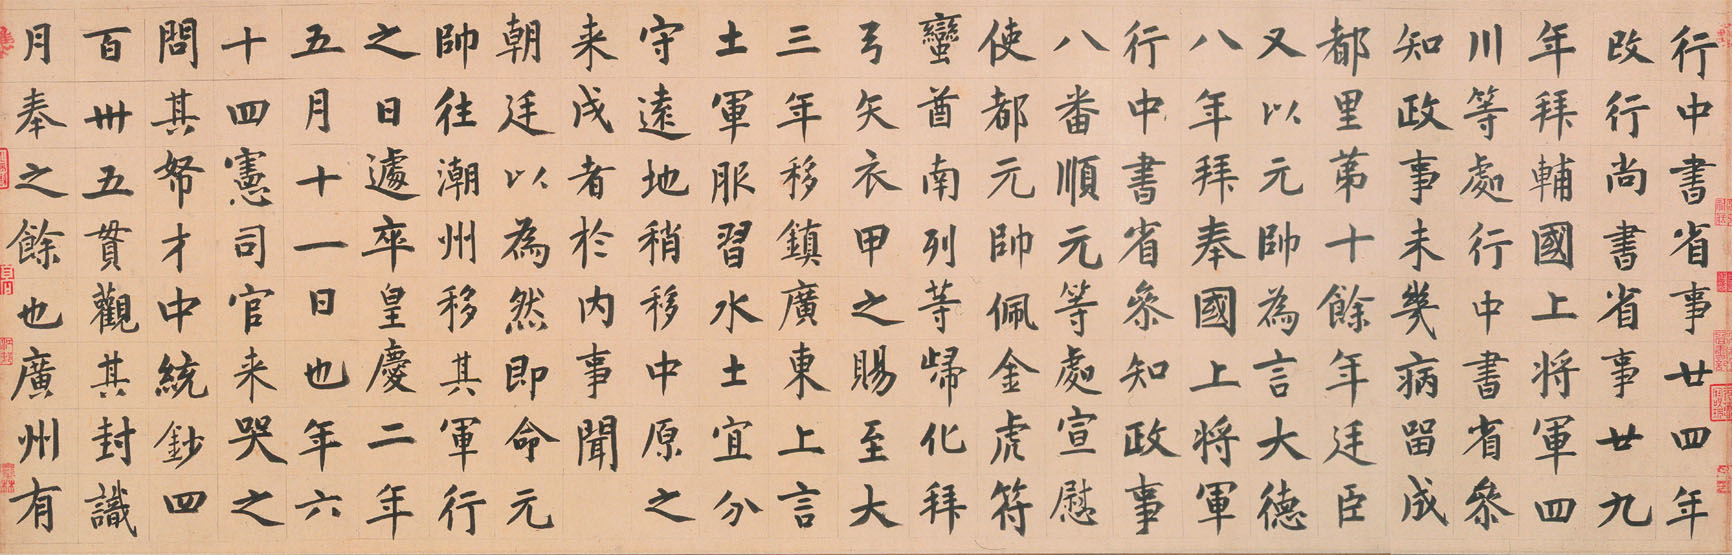 行中書省事廿四年
改行尚書省事廿九
年拜輔國上将軍四
川等處行中書省叅
知政事未幾病留成
都里第十餘年廷臣
又以元帥為言大德
八年拜奉國上将軍
行中書省叅知政事
八番順元等處宣慰
使都元帥佩金虎符
蠻酋南列等歸化拜
弓矢衣甲之賜至大
三年移鎮廣東上言
土軍服習水土宜分
守遠地稍移中原之
来戍者於内事聞
朝廷以為然即命元
帥往潮州移其軍行
之日遽卒皇慶二年
五月十一日也年六
十四憲司官来哭之
問其帑才中統鈔四
百卅五貫觀其封識
月奉之餘也廣州有